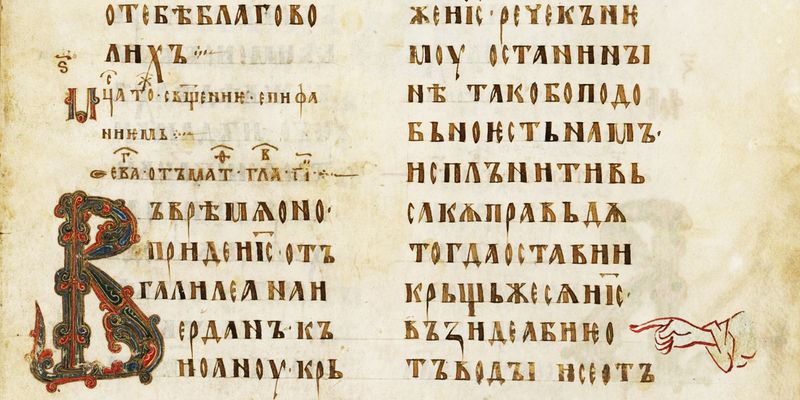 ОТЕБѢБЛАГОВО
ЛИХЪ·
Ѕ҃
мц҃а то·свѣщение·епифа
ниемь·
ева·отъмат·гла·г҃і·
ВЪВРѢМѦОНО·
ПРИДЕИС҃·ОТЪ
ГАЛИЛЕАНАИ
ЕРДАНЪ·КЪ
ИОАНОУ·КРЬ
ЖЕИС҃·РЕЧЕКЪНѤ
МОУ ОСТАНИНꙐ
НѢ ТАКОБОПОДО
БЬНОѤСТЬНАМЪ·
ИСПЛЪНИТИВЬ
САКѪПРАВЬДѪ
ТОГДАОСТАВИИ
КРЬЩЬЖЕСѦИС҃·
ВЪЗИДЕАБИЮО
ТЪВОДꙐ ИСЕОТЪ